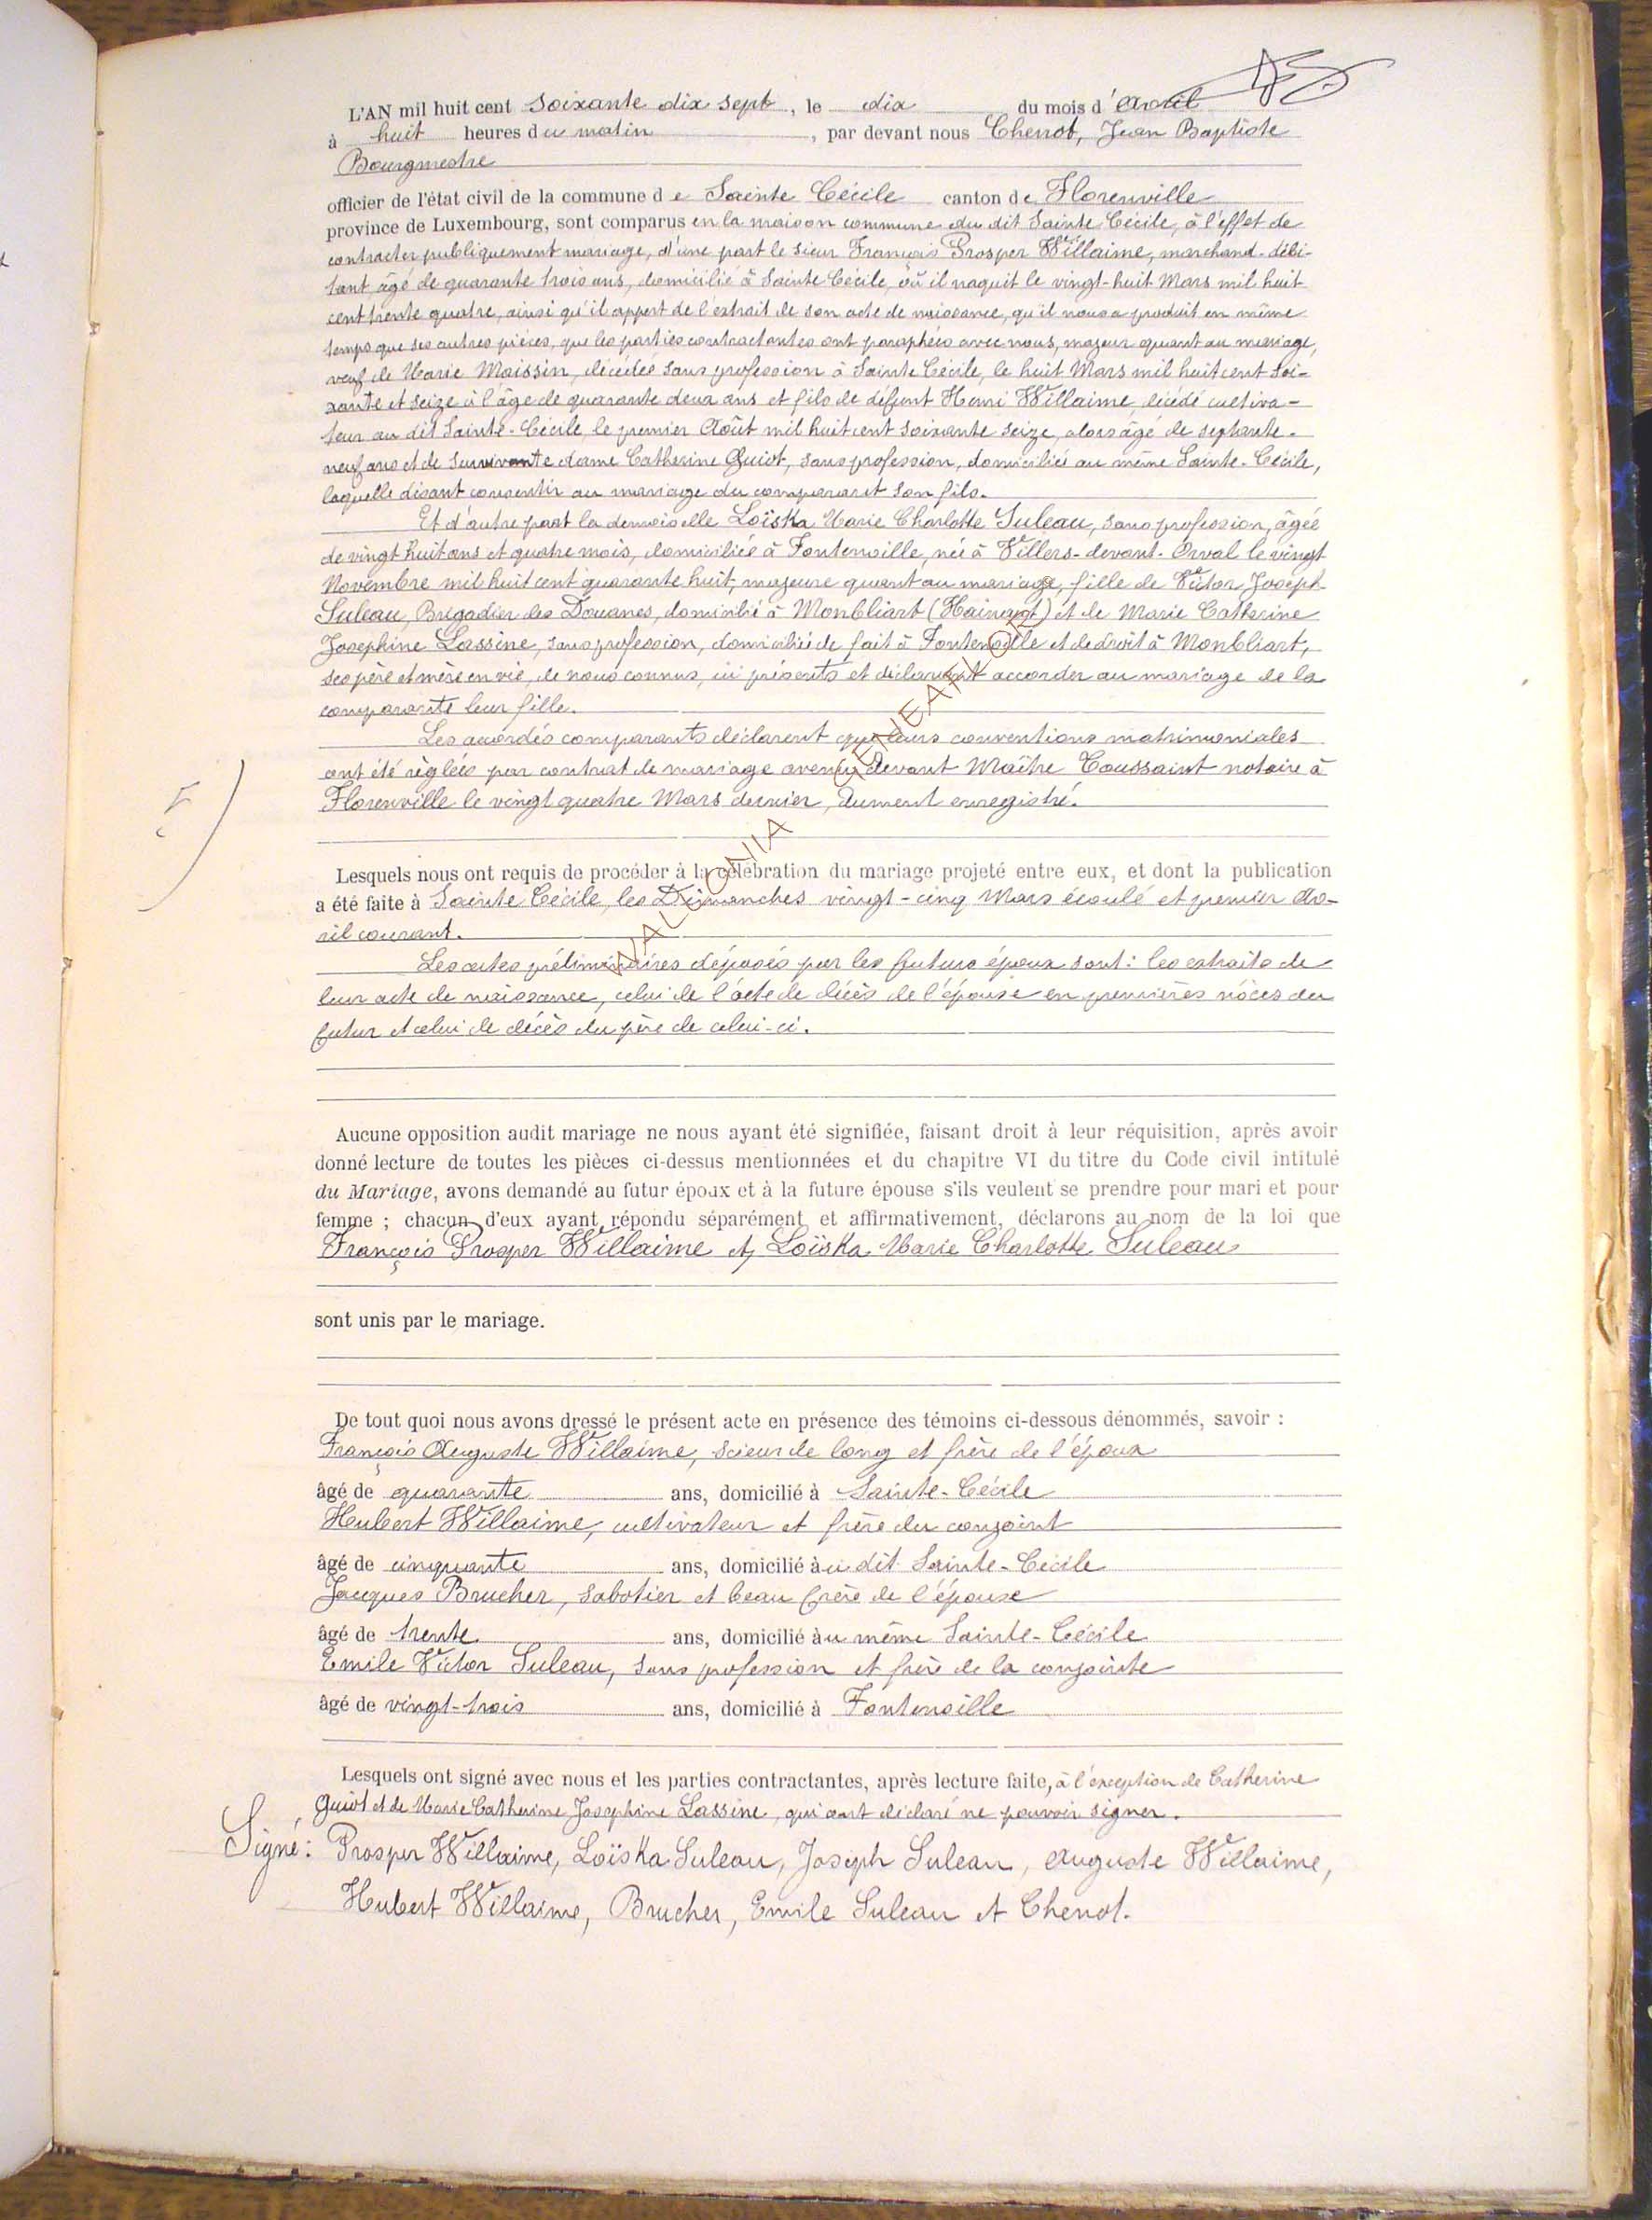 L'AN mil huit cent soixante dix sept, le dix du mois d'Avril
à huit heures du matin, par devant nous Chenot, Jean Baptiste
Bourgmestre
officier de l'état civil de la commune de Sainte Cécile canton de Florenville
province de Luxembourg, sont comparus en la maison commune du dit Sainte Cécile, à l'effet de
contracter publiquement mariage, d'une part le sieur François Prosper Willaime, marchand-débi-
tant, âgé de quarante trois ans, domicilié à Sainte Cécile, où il naquit le vingt-huit Mars mil huit
cent trente quatre, ainsi qu'il appert de l'extrait de son acte de naissance, qu'il nous a produit en même
temps que ses autres pièces, que les parties contractantes ont paraphées avec nous, majeur quant au mariage,
veuf de Marie Maissin, décédée sans profession à Sainte Cécile, le huit Mars mil huit cent soi-
xante et seize à l'âge de quarante deux ans et fils de défunt Henri Willaime, décédé cultiva-
teur au dit Sainte-Cécile, le premier Août mil huit cent soixante seize, alors âgé de septante-
neuf ans et de survivante dame Catherine Guiot, sans profession, domiciliée au même Sainte-Cécile,
laquelle disant consentir au mariage du comparant son fils.
Et d'autre part la demoiselle Loïska Marie Charlotte Suleau, sans profession, âgée
de vingt huit ans et quatre mois, domiciliée à Fontenoille, née à Villers-devant-Orval le vingt
Novembre mil huit cent quarante huit, majeure quant au mariage, fille de Victor Joseph
Suleau, Brigadier des Douanes, domicilié à Monbliart (Hainaut) et de Marie Catherine
Josephine Lassine, sans profession, domiciliée de fait à Fontenoille et de droit à Monbliart,
ses père et mère en vie, de nous connus, ici présents et déclarant accorder au mariage de la
comparante leur fille.
Les accordés comparants déclarent que leurs conventions matrimoniales
ont été réglées par contrat de mariage avenu devant Maître Toussaint notaire à
Florenville le vingt quatre Mars dernier, dument enregistré.
Lesquels nous ont requis de procéder à la célébration du mariage projeté entre eux, et dont la publication
a été faite à Sainte Cécile, les Dimanches vingt-cinq Mars écoulé et premier Av-
ril courant.
Les actes préliminaires déposés par les futurs époux sont: les extraits de
leur acte de naissance, celui de l'acte de décès de l'épouse en premières nôces du
futur et celui de décès du père de celui-ci.
Aucune opposition audit mariage ne nous ayant été signifiée, faisant droit à leur réquisition, après avoir
donné lecture de toutes les pièces ci-dessus mentionnées et du chapitre VI du titre du Code civil intitulé
du Mariage, avons demandé au futur époux et à la future épouse s'ils veulent se prendre pour mari et pour
femme ; chacun d'eux ayant répondu séparément et affirmativement, déclarons au nom de la loi que
François Prosper Willaime et Loïska Marie Charlotte Suleau
sont unis par le mariage.
De tout quoi nous avons dressé le présent acte en présence des témoins ci-dessous dénommés, savoir :
François Auguste Willaime, scieur de long et frère de l'époux
âgé de quarante ans, domicilié à Sainte-Cécile
Hubert Willaime, cultivateur et frère du conjoint
âgé de cinquante ans, domicilié au dit Sainte-Cécile
Jacques Brucher, sabotier et beau frère de l'épouse
âgé de trente ans, domicilié au même Sainte-Cécile
Emile Victor Suleau, sans profession et frère de la conjointe
âgé de vingt-trois ans, domicilié à Fontenoille
Lesquels ont signé avec nous et les parties contractantes, après lecture faite, à l'exception de Catherine
Guiot et de Marie Catherine Josephine Lassine, qui ont déclaré ne pouvoir signer.
Signé: Prosper Willaime, Loïska Suleau, Joseph Suleau, Auguste Willaime,
Hubert Willaime, Brucher, Emile Suleau et Chenot.